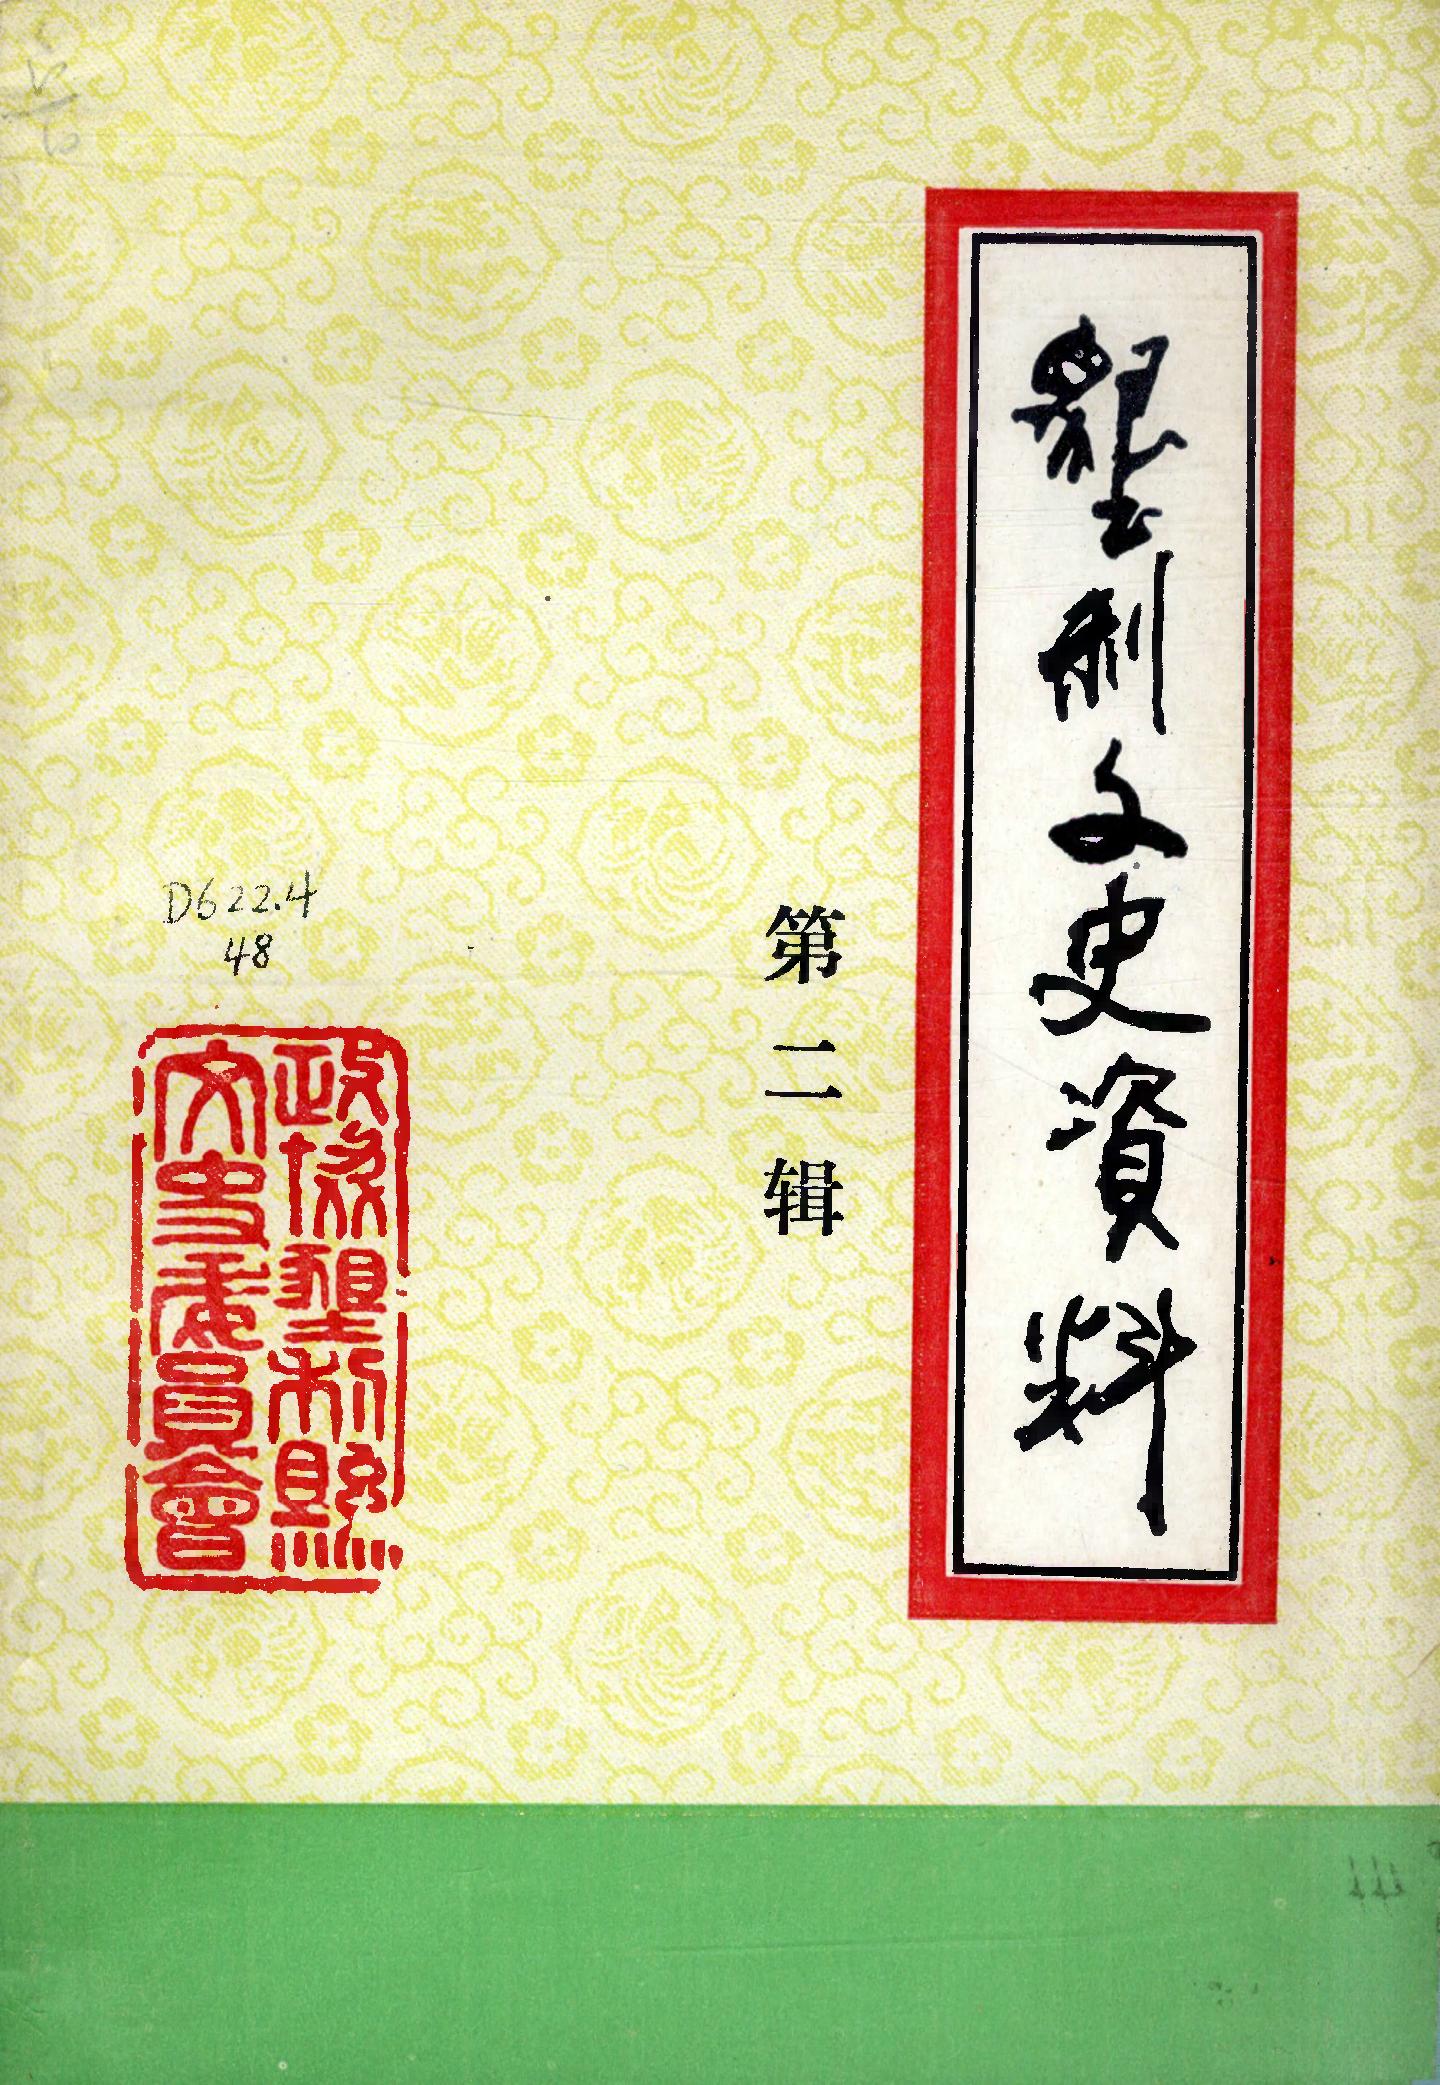 墾利文史資料
第二辑
D622.4
48
政協墾利縣
文史委員會